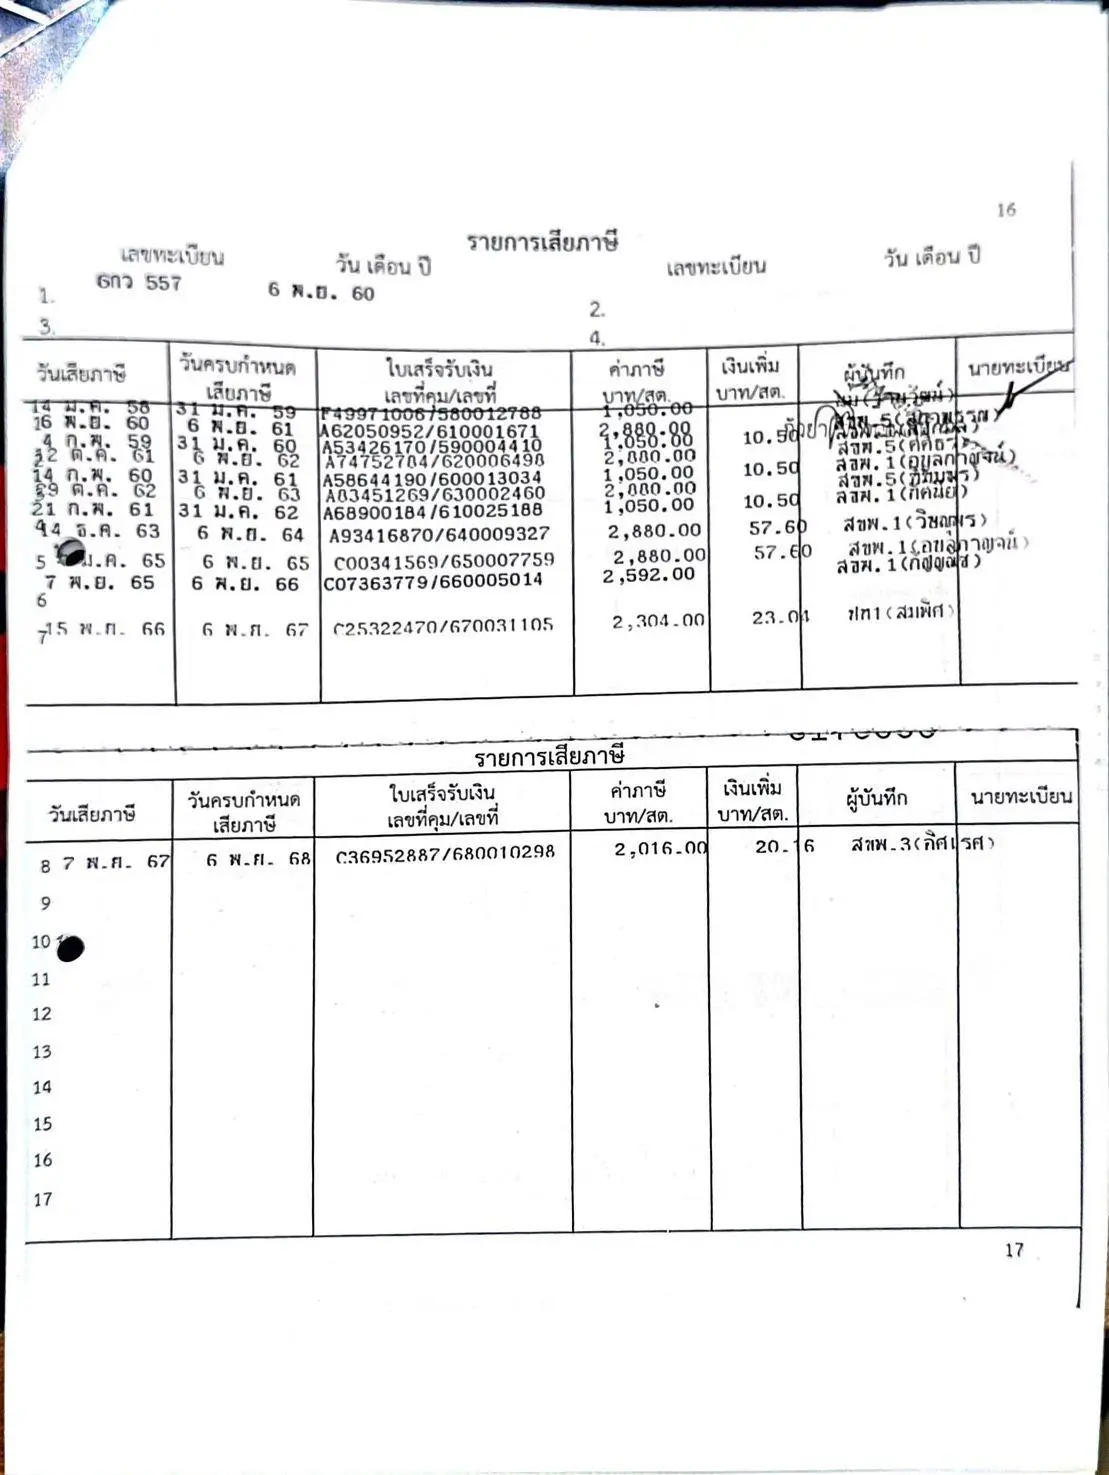 16
รายการเสียภาษี
เลขทะเบียน วัน เดือน ปี เลขทะเบียน วัน เดือน ปี
1. 6กว 557 6 พ.ย. 60 2.
3. 4.
วันเสียภาษี วันครบกำหนด ใบเสร็จรับเงิน ค่าภาษี เงินเพิ่ม ผู้บันทึก นายทะเบียน
เสียภาษี เลขที่คุม/เลขที่ บาท/สต. บาท/สต.
14 ม.ค. 58 31 ม.ค. 59 F49971006/580012788 1,050.00
16 พ.ย. 60 6 พ.ย. 61 A62050952/610001671 2,880.00
4 ก.พ. 59 31 ม.ค. 60 A53426170/590004410 1,050.00 10.50
12 ต.ค. 61 6 พ.ย. 62 A74752784/620006498 2,880.00 สขพ.1(อุบลกาญจน์)
14 ก.พ. 60 31 ม.ค. 61 A58644190/600013034 1,050.00 10.50
29 ต.ค. 62 6 พ.ย. 63 A83451269/630002460 2,880.00 สขพ.1
21 ก.พ. 61 31 ม.ค. 62 A68900184/610025188 1,050.00 10.50
4 14 ธ.ค. 63 6 พ.ย. 64 A93416870/640009327 2,880.00 57.60 สขพ.1
5 ม.ค. 65 6 พ.ย. 65 C00341569/650007759 2,880.00 57.60 สขพ.1(อุบลกาญจน์)
7 พ.ย. 65 6 พ.ย. 66 C07363779/660005014 2,592.00 สขพ.1
6
7 15 พ.ย. 66 6 พ.ย. 67 C25322470/670031105 2,304.00 23.04 ปท1(สมพิศ)
รายการเสียภาษี
วันเสียภาษี วันครบกำหนด ใบเสร็จรับเงิน ค่าภาษี เงินเพิ่ม ผู้บันทึก นายทะเบียน
เสียภาษี เลขที่คุม/เลขที่ บาท/สต. บาท/สต.
8 7 พ.ย. 67 6 พ.ย. 68 C36952887/680010298 2,016.00 20.16 สขพ.3
9
10
11
12
13
14
15
16
17
17